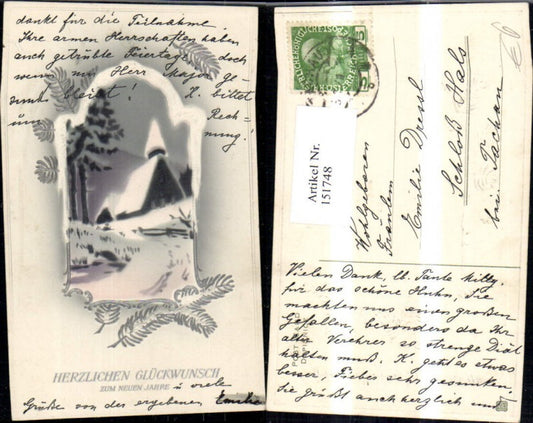 dankt für die Teilnahme
Ihre armen Herrschaften haben
auch getrübte Feiertage, doch
wenn nur Herr Major ge-
sund bleibt! K. bittet
um Rech-
nung!
HERZLICHEN GLÜCKWUNSCH
ZUM NEUEN JAHRE u viele
Grüße von der ergebenen Emilie
Artikel Nr.
151748
Wohlgeboren
Fräulein
Emilie Dressl
Schloß Hals
bei Tachau
Vielen Dank, lb. Tante Milly,
für das schöne Huhn, Sie
machten uns einen großen
Gefallen, besonders da Ihr
alter Verehrer so strenge Diät
halten muß. K. geht es etwas
besser, Fieber sehr gesunken,
sie grüßt auch herzlich und